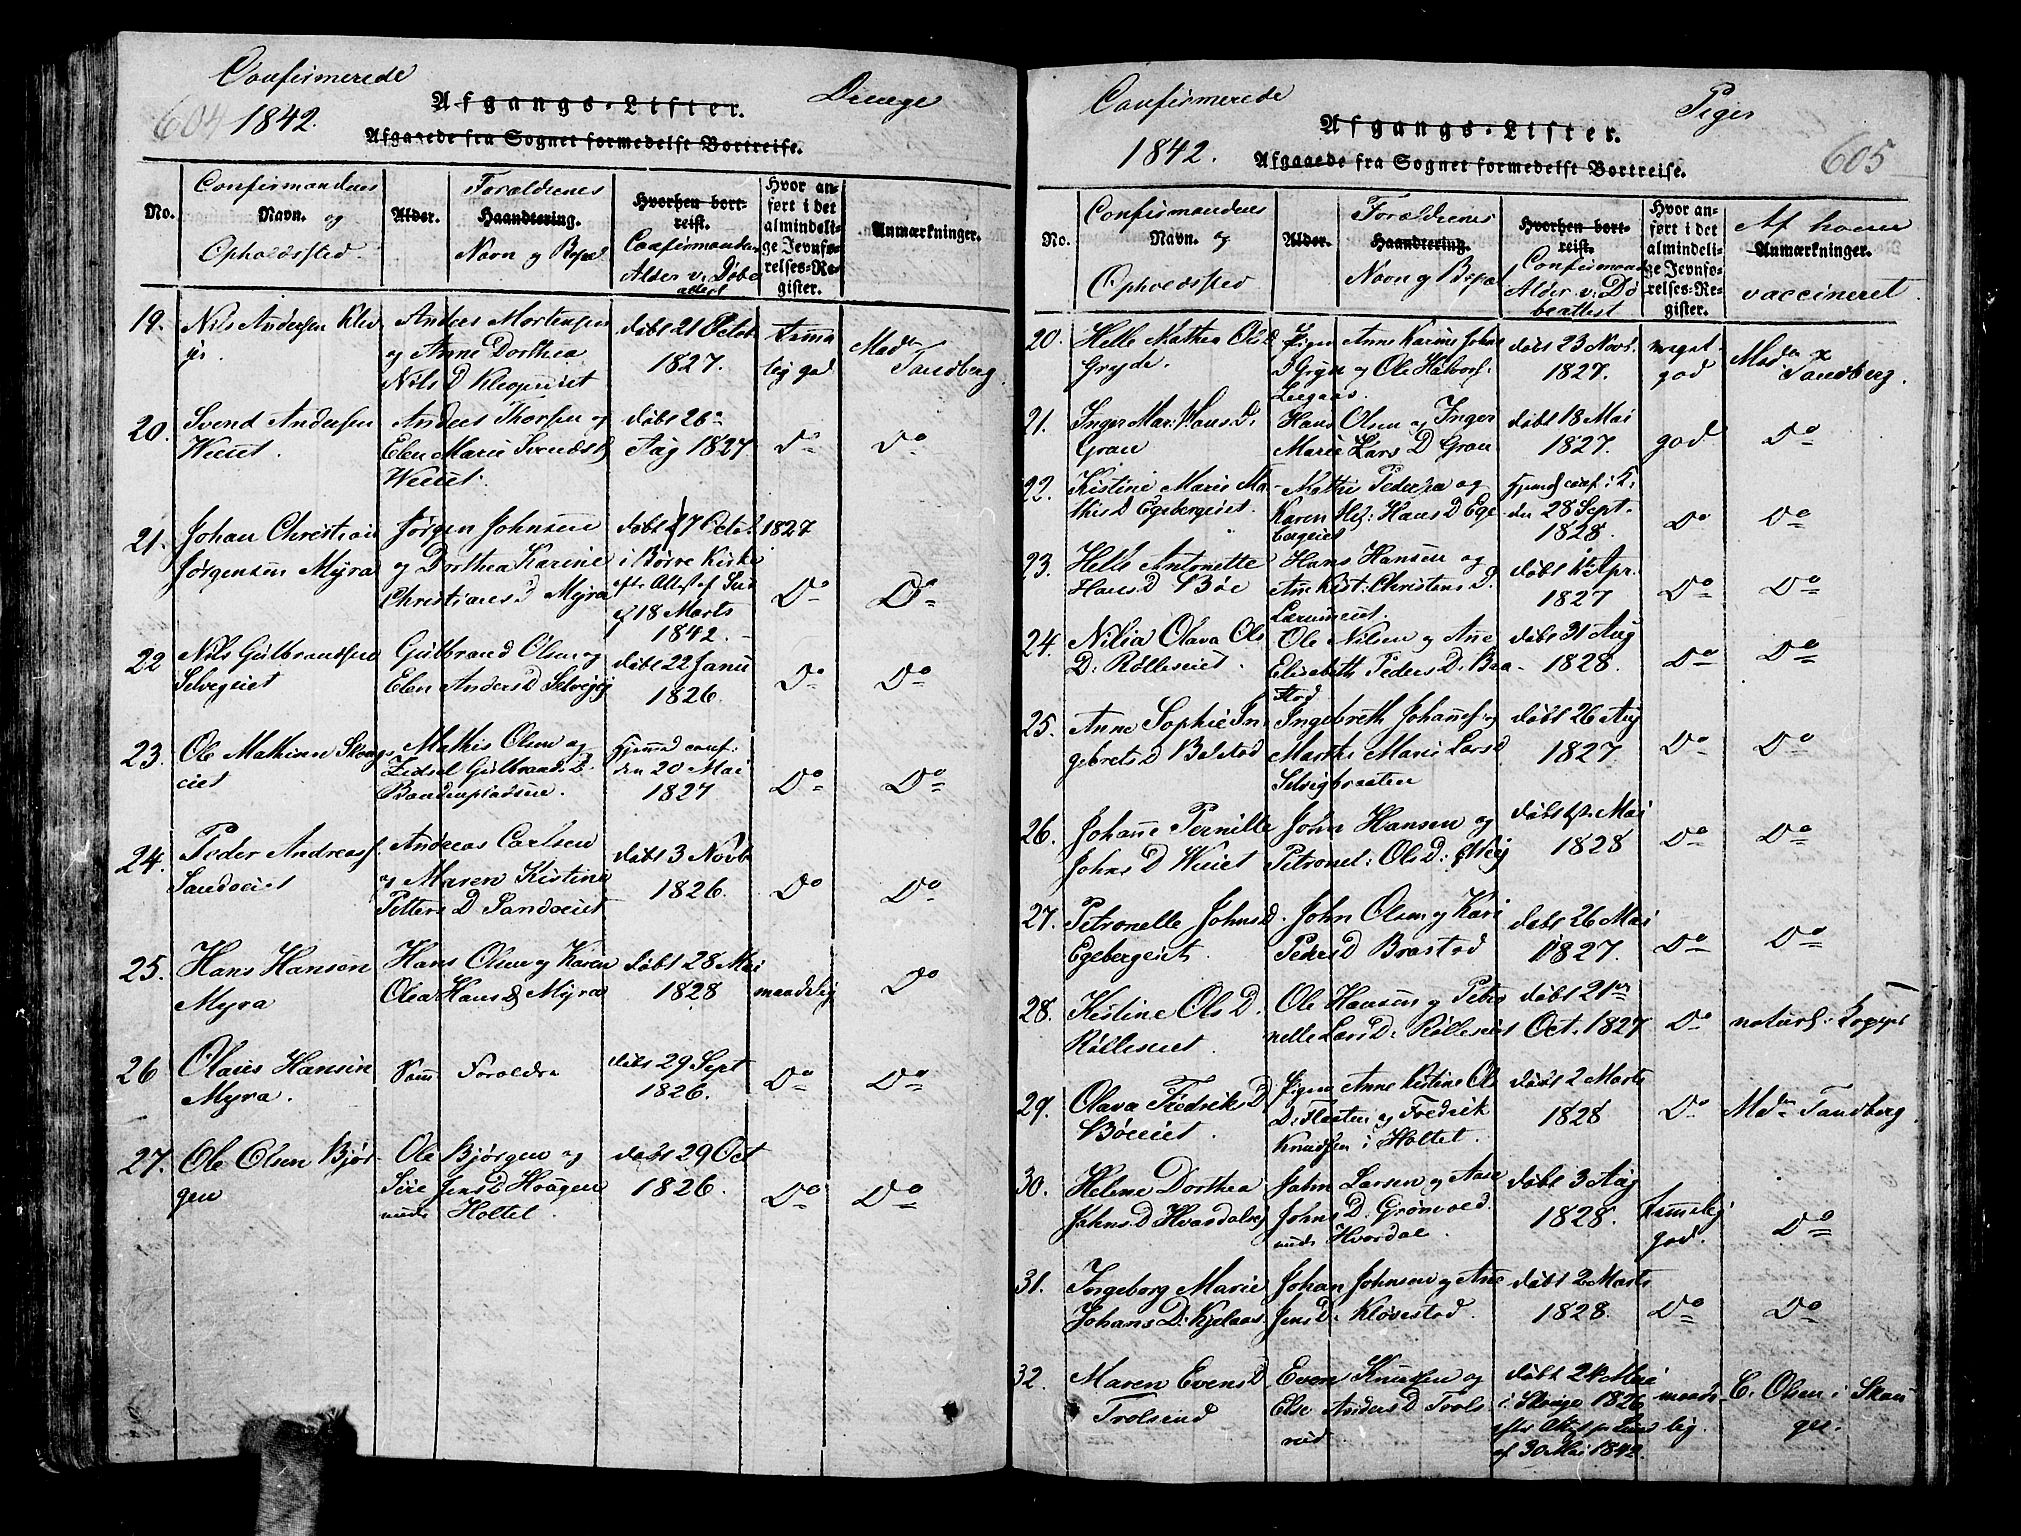 Confirmerede
Drenge
604 1842.
Afgangs-Lister.
Afgaaede fra Sognet formedelst Bortreise.
No.
Confirmandens
Navn. og
Opholdssted.
Alder.
Forældrenes
Haandtering.
Navn og Bopæl
Hvorhen bort-
reist.
Confirmandens
Alder v: Døbe
attest
Hvor an-
ført i det
almindeli-
ge Jevnfø-
relses-Re-
gister.
Anmærkninger.
19.
Nils Andersen
Anders Mortensen
og Anne Dorthea
Nils D
døbt 21
1827.
god
Mad
Tandberg.
20.
Svend Andersen
Wiiet.
Anders Thorsen og
Elen Marie Svends D
Wiiet.
døbt 26
Aug 1827
Do
Do
21.
Johan Christian
Jørgensen Myra
Jørgen Johnsen
og Dorthea Karine
Christians D Myra
døbt 7 Octob 1827
i Borre Kirke
efter Attest af
18 Marts
1842.
Do
Do
22
Nils Gulbrandsen
Selvegeiet
Gulbrand Olsen og
Elen Anders D
døbt 22 Janu
1826.
Do
Do
23.
Ole Mathisen
eiet
Mathis Olsen og
Gulbrands D.
hjemmed conf:
den 20 Mai
1827
Do
Do
24.
Peder Andreas
Sandoeiet
Andreas Carlsen
og Maren Kistine
Petters D Sandoeiet
døbt 3 Novb
1826.
Do
Do
25.
Hans Hansen
Myra
Hans Olsen og Karen
Olea Hans D Myra
døbt 28 Mai
1828
maadelig
Do
26
Olaus Hansen
Myra.
Samme Forældre
døbt 29 Sept
1826.
Do
Do
27.
Ole Olsen Bjør-
gen
Ole Bjørgen og
Jens D Haugen
Holtet.
døbt 29 Oct
1826.
Do
Do
Confirmerede
Piger
1842.
Afgangs-Lister.
605
Afgaaede fra Sognet formedelst Bortreise.
No.
Confirmandens
Navn. og
Opholdssted
Alder.
Forældrenes
Haandtering.
Navn og Bopæl
Hvorhen bort-
reist.
Confirmand
Alder v: Dø
beattest
Hvor an-
ført i det
almindeli-
ge Jevnfø-
relses-Re-
gister.
Af hvem
Anmærkninger.
vaccineret.
20.
Helle Mathea Ols D
Gryde.
Pigen Anne Karine Johns
D Gryde og Ole Halvors.
døbt 23 Novb.
1827.
meget
god
Mad
Tandberg.
21.
Inger Mar: Hans D.
Gran
Hans Olsen og Inger
Marie Lars D Gran
døbt 18 Mai
1827.
god
Do
22.
Kistine Marie Ma-
this D Egebergeiet.
Mathis Pedersen og
Karen Hel: Hans D Ege
bergeiet
hjemmed conf: i K.
den 28 Sept.
1828.
Do
Do
23.
Helle Antonette
Hans D Bøe
Hans Hansen og
Ann Kist: Christens D.
døbt 1te Apr.
1827
Do
Do
24.
Nilia Olava Ols
D: Rølleseiet.
Ole Nilsen og Ane
Elisabeth Peders D. Braa-
stad
døbt 31 Aug
1828.
Do
Do
25.
Anne Sophie In-
gebrets D Bolstad
Ingebreth Johannes. og
Marthe Marie Lars D
Selvigbraaten
døbt 26 Aug
1827.
Do
Do
26.
Johanne Pernille
Johns D Wiiet
John Hansen og
Petronel: Ols D:
døbt Mai
1828
Do
Do
27.
Petronelle Johns D.
Egebergeiet.
John Olsen og Kari
Peders D Brastad
døbt 26 Mai
1827.
Do
Do
28.
Kistine Ols D.
Rølleseiet.
Ole Hansen og Petro
nelle Lars D: Rølleseiet
døbt 21
Oct. 1827
Do
naturl: Kopper
29.
Olava Fredriks D
Bøeeiet.
Pigen Anne Kistine Ols
D: og Fredrik
Knudsen i Holtet.
døbt 2 Marts
1828
Do
Md Tandberg
30.
Helene Dorthea
Johns D Hvardalsej
John Larsen og Aase
Johns D. Grønvold
Hvardal.
døbt 3 Aug
1828.
temmelig
god.
Do
31.
Ingeborg Marie
Johans D: Kjelaas
Johan Johnsen og Ane
Jens D: Kløvestad.
døbt 2 Marts
1828.
Do
Do
32.
Maren Evens D
Trolserud
Even Knudsen og
Else Anders D Trols
rud
døbt 24 Mai
i Skouge 1826
efter Attest fra
af 30 Mai 1842.
maade-
lig.
C. Olsen i Skou
ger.